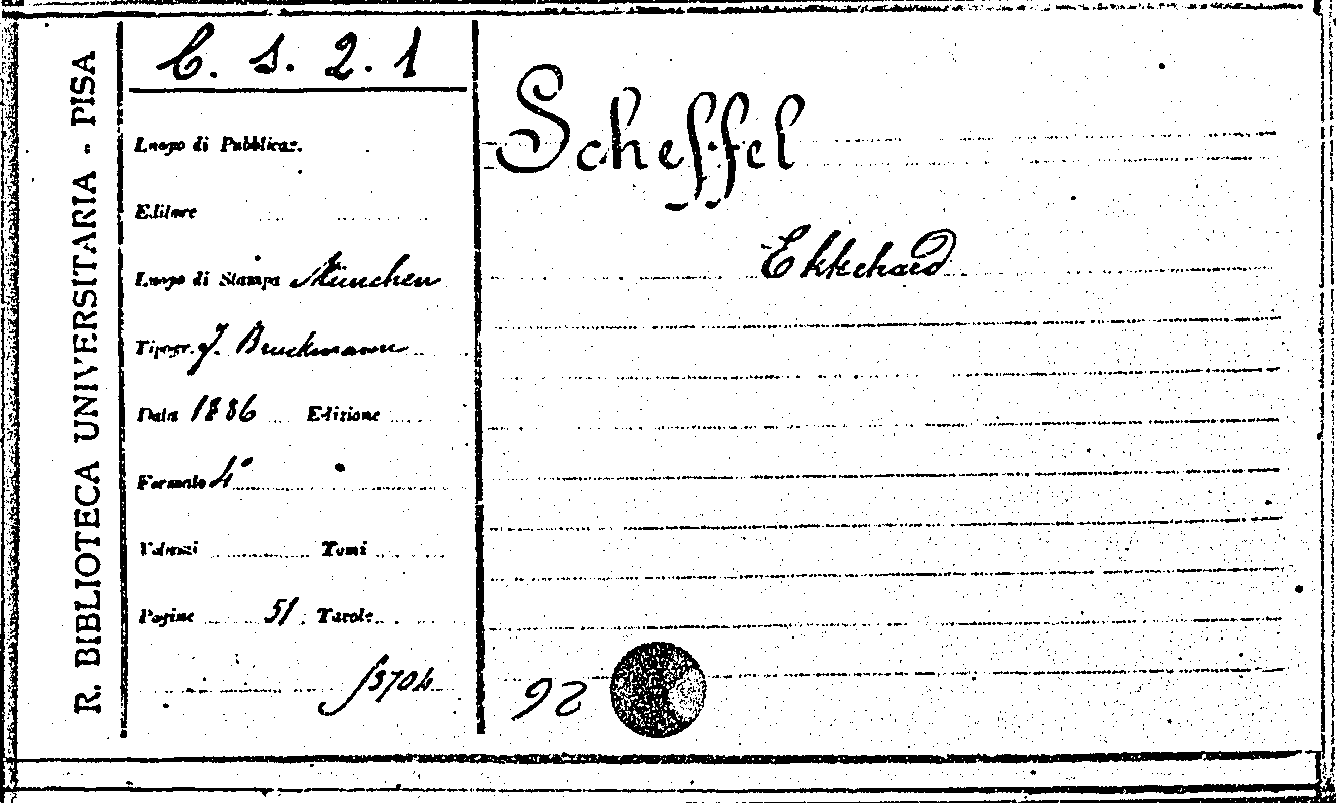 R. BIBLIOTECA UNIVERSITARIA - PISA
C. s. 2. 1
Luogo di Pubblicaz.
Editore
Luogo di Stampa München
Tipogr. J. Bruckmann
Data 1886 Edizione
Formato 4°
Volumi Tomi
Pagine 51 Tavole
Scheffel
Ekkehard
92